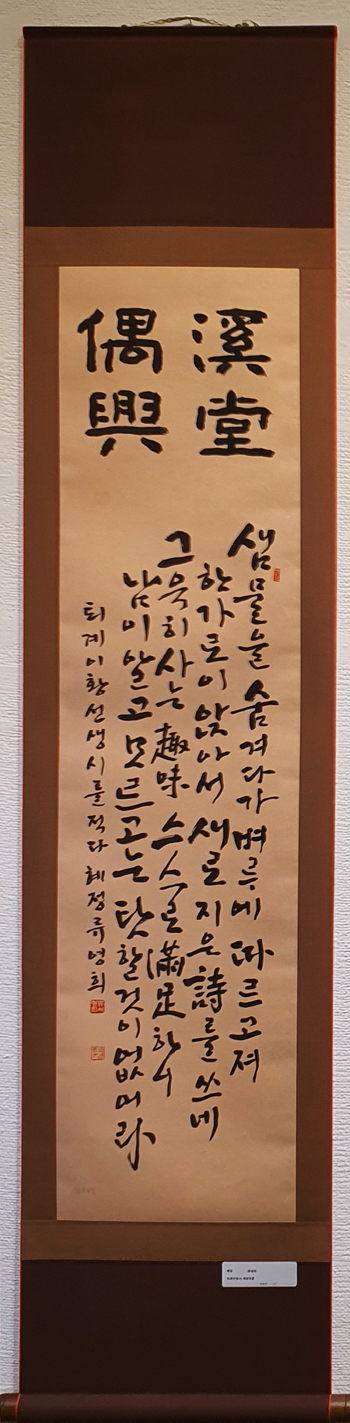 溪堂
偶興
샘물을 숨겨다가 벼루에 따르고져
한가로이 앉아서 새로 지은 詩를 쓰네
그윽히 사는 趣味 스스로 滿足하니
남이 알고 모르고는 탓할것이 없어라
퇴계이황선생시를적다 혜정류영희